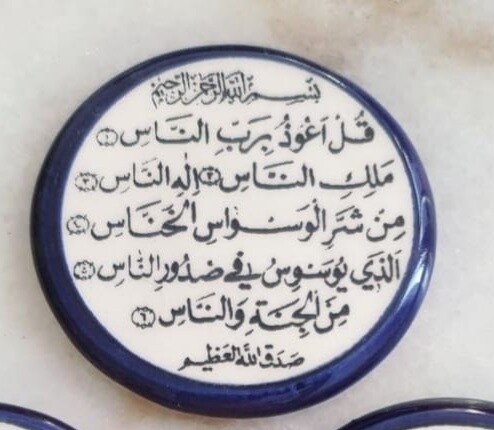 بِسْمِ اللهِ الرَّحْمٰنِ الرَّحِيْمِ
قُلْ اَعُوْذُ بِرَبِّ النَّاسِ ①
مَلِكِ النَّاسِ ② اِلٰهِ النَّاسِ ③
مِنْ شَرِّ الْوَسْوَاسِ الْخَنَّاسِ ④
الَّذِي يُوَسْوِسُ فِي صُدُوْرِ النَّاسِ ⑤
مِنَ الْجِنَّةِ وَالنَّاسِ ⑥
صَدَقَ اللهُ الْعَظِيْم